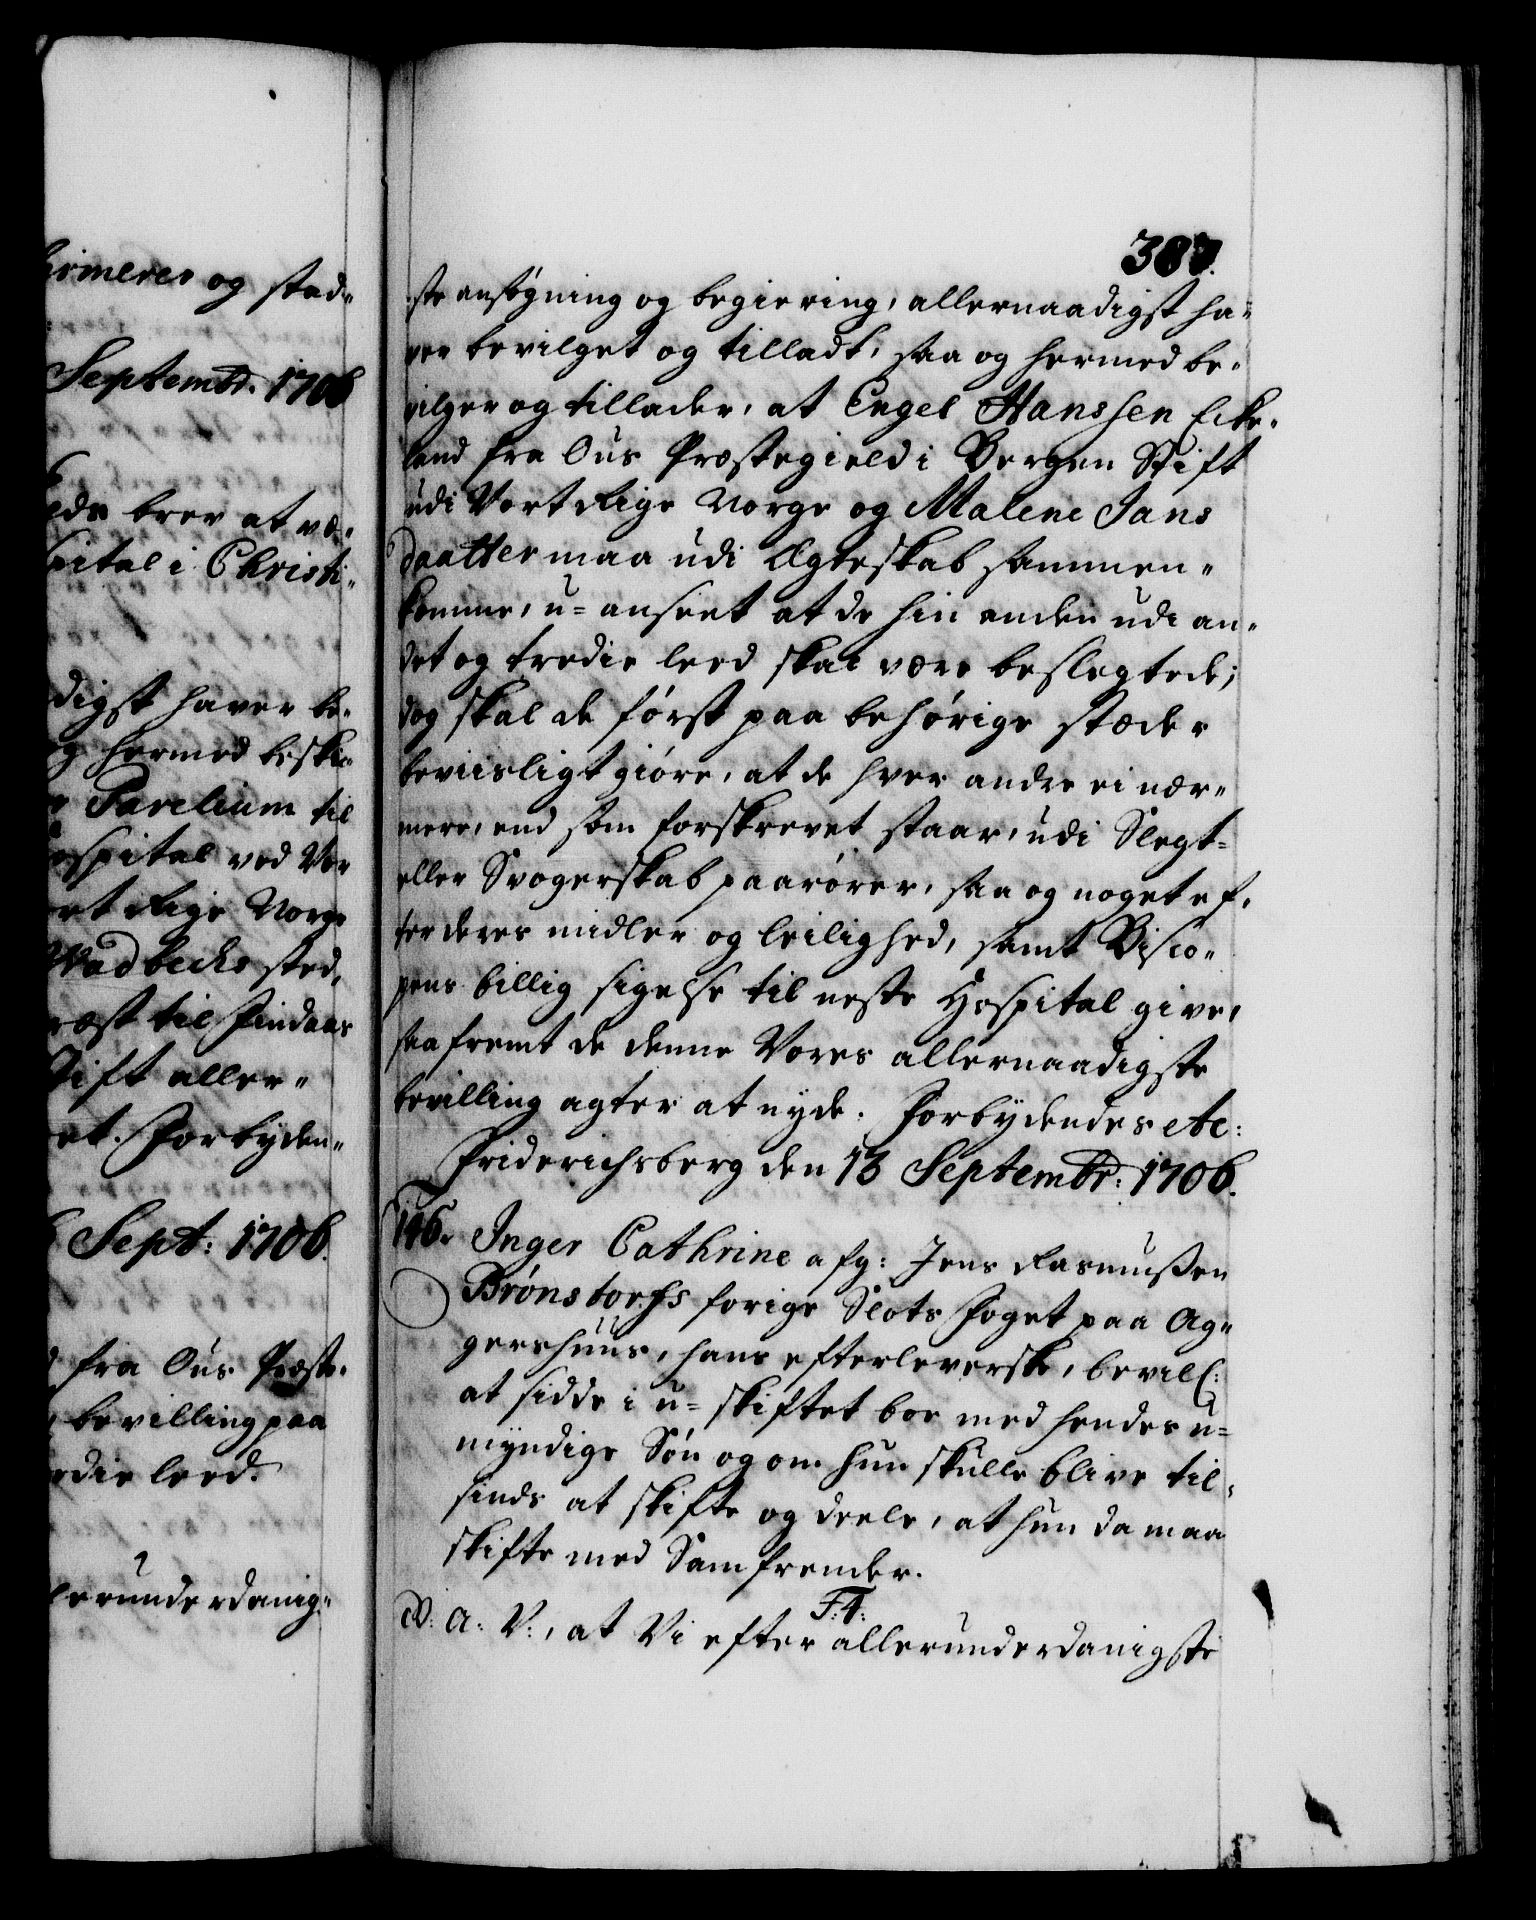 irmerer og stad-
Septembr. 1706
eds brev at væ-
pital i Christi-
digst haver be-
g hermed beskic-
Parelium til
ospital ved Vor
ort Rige Norge
Wadbechs sted,
ræst til Findaas
Stift aller-
et. Forbyden-
Sept: 1706.
fra Ous Præste-
bevilling paa
redie leed.
lerunderdanig-
387.
ste ansøgning og begiering, allernaadigst ha-
ver bevilget og tilladt, saa og hermed be-
vilger og tillader, at Engel Hanssen Eike-
land fra Ous Præstegield i Bergen Stift
udi Vort Rige Norge og Malene Jans
daatter maa udi Ægteskab sammen-
komme, u-anseet at de hin anden udi an-
det og tredie leed skal være beslegtede;
dog skal de først paa behørige stæder
beviisligt giöre, at de hver andre ei nær-
mere, end som forskrevet staar, udi Slegt-
eller Svogerskab paarører, saa og noget ef-
ter deres midler og leilighed, samt Bisco-
pens billig sigelse til neste Hospital give,
saa fremt de denne Vores allernaadigste
bevilling agter at nyde. Forbydendes etc:
Friderichsberg den 13 Septembr: 1706.
146. Inger Cathrine afg: Jens Rasmussen
Brønstorfs forige Slots Foget paa Ag-
gershuus, hans efterleverske, bevill:
at sidde i u-skiftet boe med hendes u-
myndige Søn og om hun skulle blive til-
sinds at skifte og deele, at hun da maa
skifte med Samfrender.
F: 4:
G: A: V:, at Vi efter allerunderdanigste